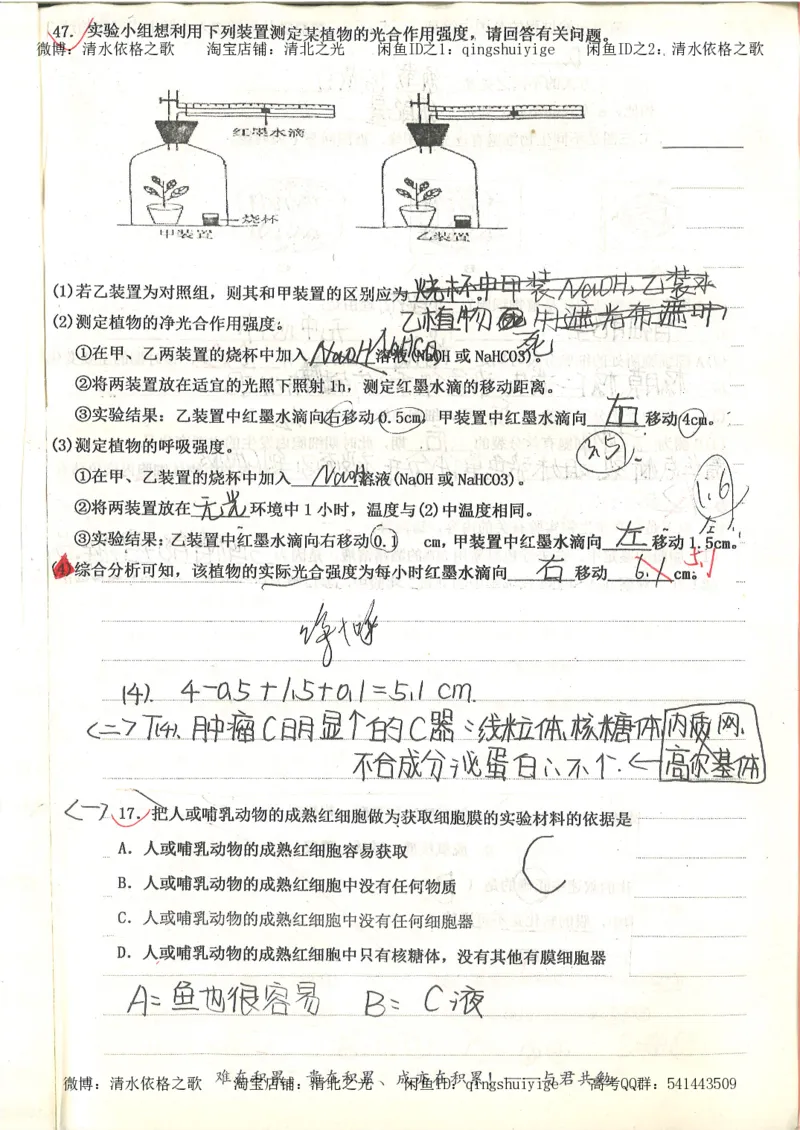 47. 实验小组想利用下列装置测定某植物的光合作用强度，请回答有关问题。
微博：清水依格之歌 淘宝店铺：清北之光 闲鱼ID之1：qingshuiyige 闲鱼ID之2：清水依格之歌
红墨水滴
烧杯
甲装置 乙装置
(1)若乙装置为对照组，则其和甲装置的区别应为 烧杯中甲装NaOH，乙装水。
(2)测定植物的净光合作用强度。 乙植物 用遮光布遮叶
死
①在甲、乙两装置的烧杯中加入 NaOH NaHCO 溶液(NaOH 或 NaHCO3)。
②将两装置放在适宜的光照下照射 1h，测定红墨水滴的移动距离。
③实验结果：乙装置中红墨水滴向右移动 0.5cm，甲装置中红墨水滴向 右 移动 4cm。
(3)测定植物的呼吸强度。 3.5
①在甲、乙装置的烧杯中加入 NaOH 溶液(NaOH 或 NaHCO3)。
1.6
②将两装置放在 无光 环境中 1 小时，温度与(2)中温度相同。
③实验结果：乙装置中红墨水滴向右移动 0.1 cm，甲装置中红墨水滴向 左 移动 1.5cm。
(4)综合分析可知，该植物的实际光合强度为每小时红墨水滴向 右 移动 6.1 cm。 5.1
净+呼
(4). 4-0.5+1.5+0.1=5.1 cm.
<二>T(4). 肿瘤C明显个的C器：线粒体、核糖体 内质网、
不合成分泌蛋白∴不个. ← 高尔基体
<一> 17. 把人或哺乳动物的成熟红细胞做为获取细胞膜的实验材料的依据是
A. 人或哺乳动物的成熟红细胞容易获取
C
B. 人或哺乳动物的成熟红细胞中没有任何物质
C. 人或哺乳动物的成熟红细胞中没有任何细胞器
D. 人或哺乳动物的成熟红细胞中只有核糖体，没有其他有膜细胞器
A=鱼也很容易 B= C液
难在积累、贵在积累、成亦在积累！——与君共勉
微博：清水依格之歌 淘宝店铺：清北之光 闲鱼ID：qingshuiyige 高考QQ群：541443509